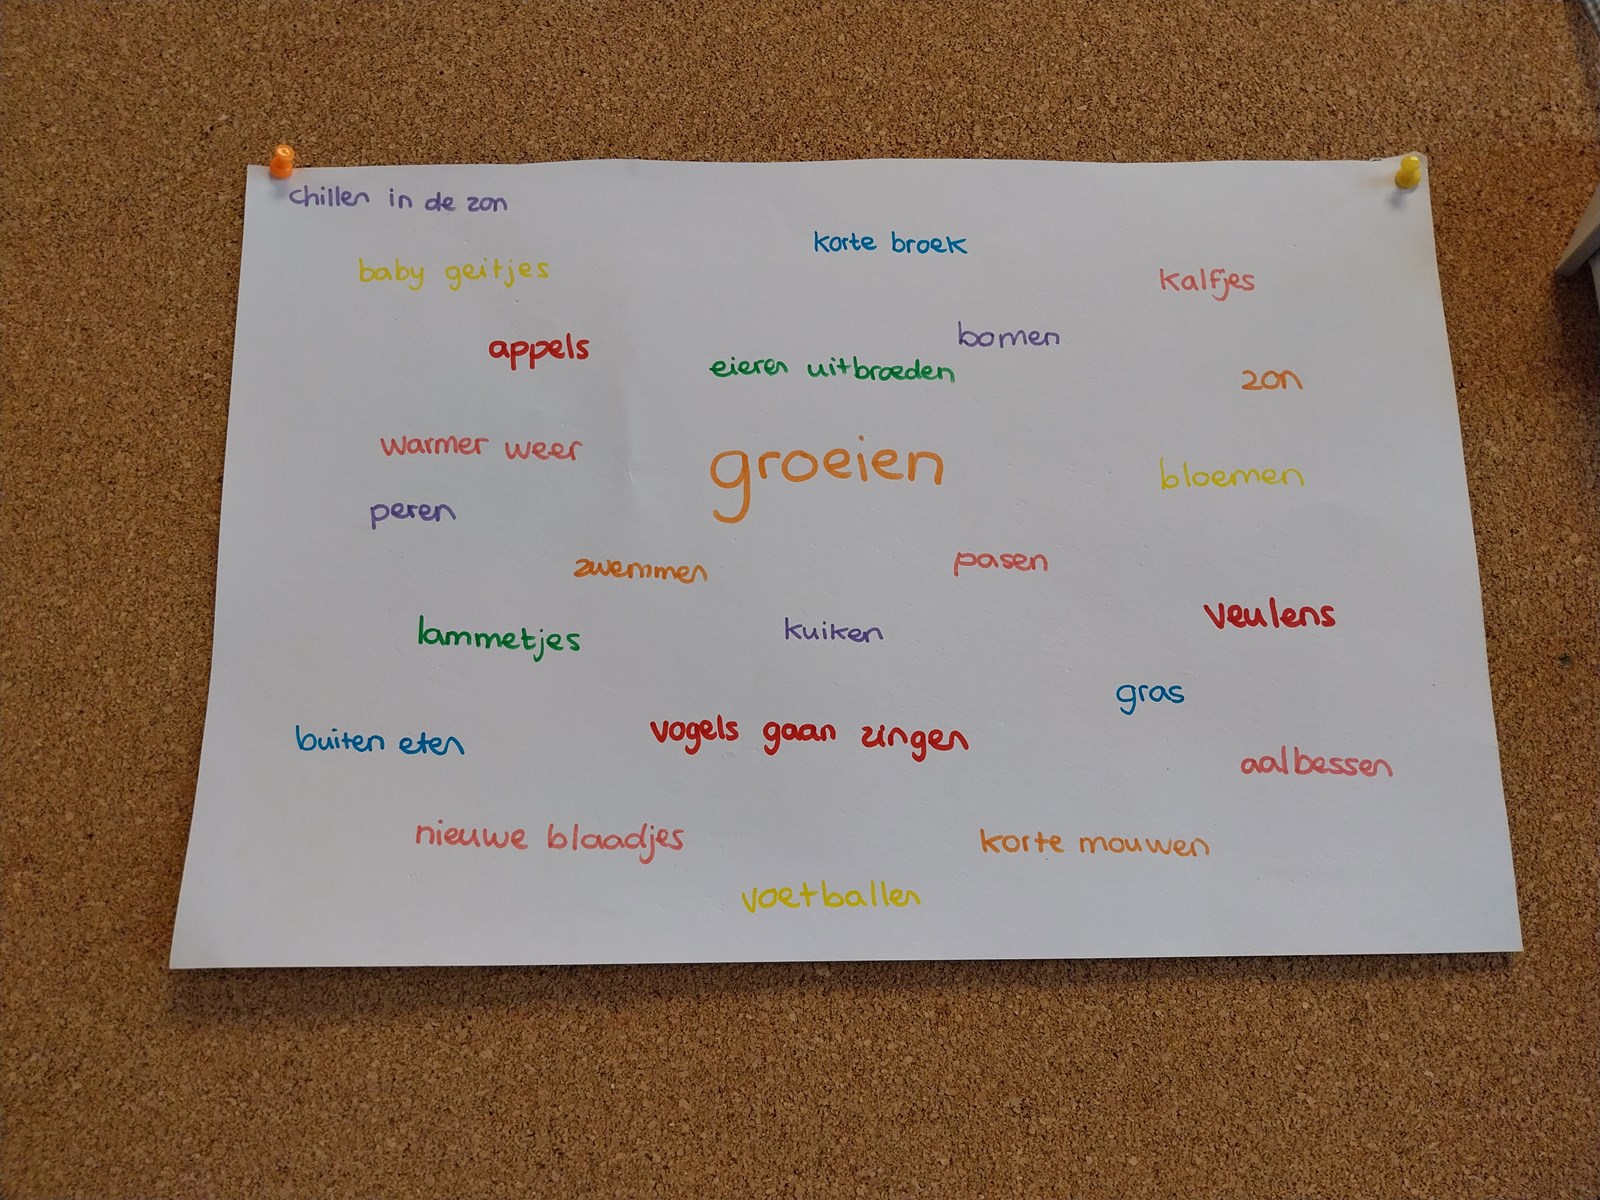 chillen in de zon
korte broek
baby geitjes
kalfjes
bomen
appels
eieren uitbroeden
zon
warmer weer
groeien
bloemen
peren
zwemmen
pasen
veulens
lammetjes
kuiken
gras
buiten eten
vogels gaan zingen
aalbessen
nieuwe blaadjes
korte mouwen
voetballen